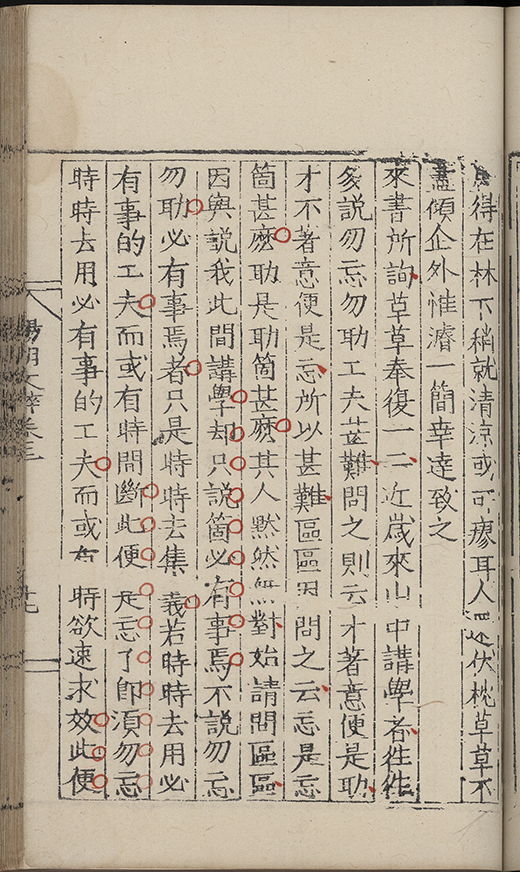 得在林下稍就清涼或可瘳耳人還伏枕草草不
盡傾企外惟濬一簡幸達致之
來書所詢草草奉復一二近歲來山中講學者往往
多說勿忘勿助工夫甚難問之則云才著意便是助
才不著意便是忘所以甚難區區因問之云忘是忘
箇甚麼助是助箇甚麼其人默然無對始請問區區
因與說我此間講學却只說箇必有事焉不說勿忘
勿助必有事焉者只是時時去集義若時時去用必
有事的工夫而或有時間斷此便是忘了卽須勿忘
時時去用必有事的工夫而或有時欲速求效此便
陽明文粹卷三
十七